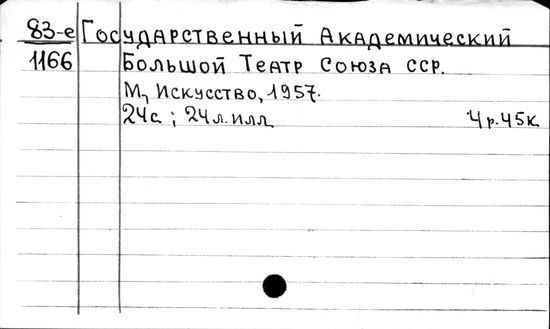 83-е Государственный Академический
1166 Большой Театр Союза ССР.
М., Искусство, 1957.
24 с.; 24 л. илл. 4 р. 45 к.